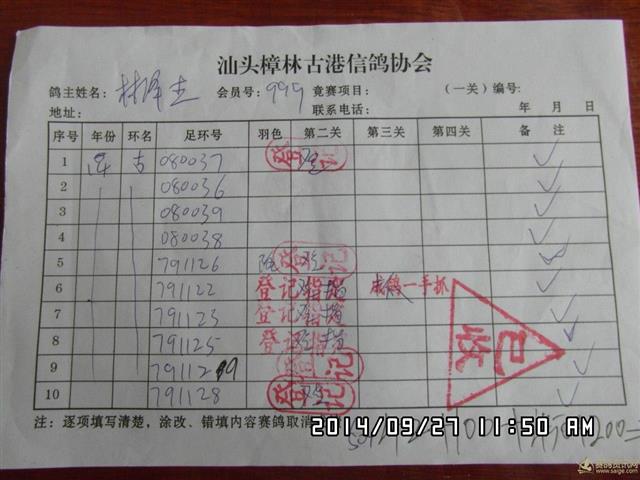 汕头樟林古港信鸽协会
鸽主姓名: 林泽 会员号: 999 竞赛项目: (一关)编号:
地址: 联系电话: 年 月 日
序号 年份 环名 足环号 羽色 第二关 第三关 第四关 备 注
1 古 080037 登记 ✓
2 080036 ✓
3 080039 ✓
4 080038 ✓
5 791126 登记 ✓
6 791122 登记 成鸽一手抓 ✓
7 791123 登记 ✓
8 791125 登记 已收 ✓
9 791129 登记 ✓
10 791128 登记 ✓
注：逐项填写清楚，涂改、错填内容赛鸽取消
2014/09/27 11:50 AM
www.saige.com